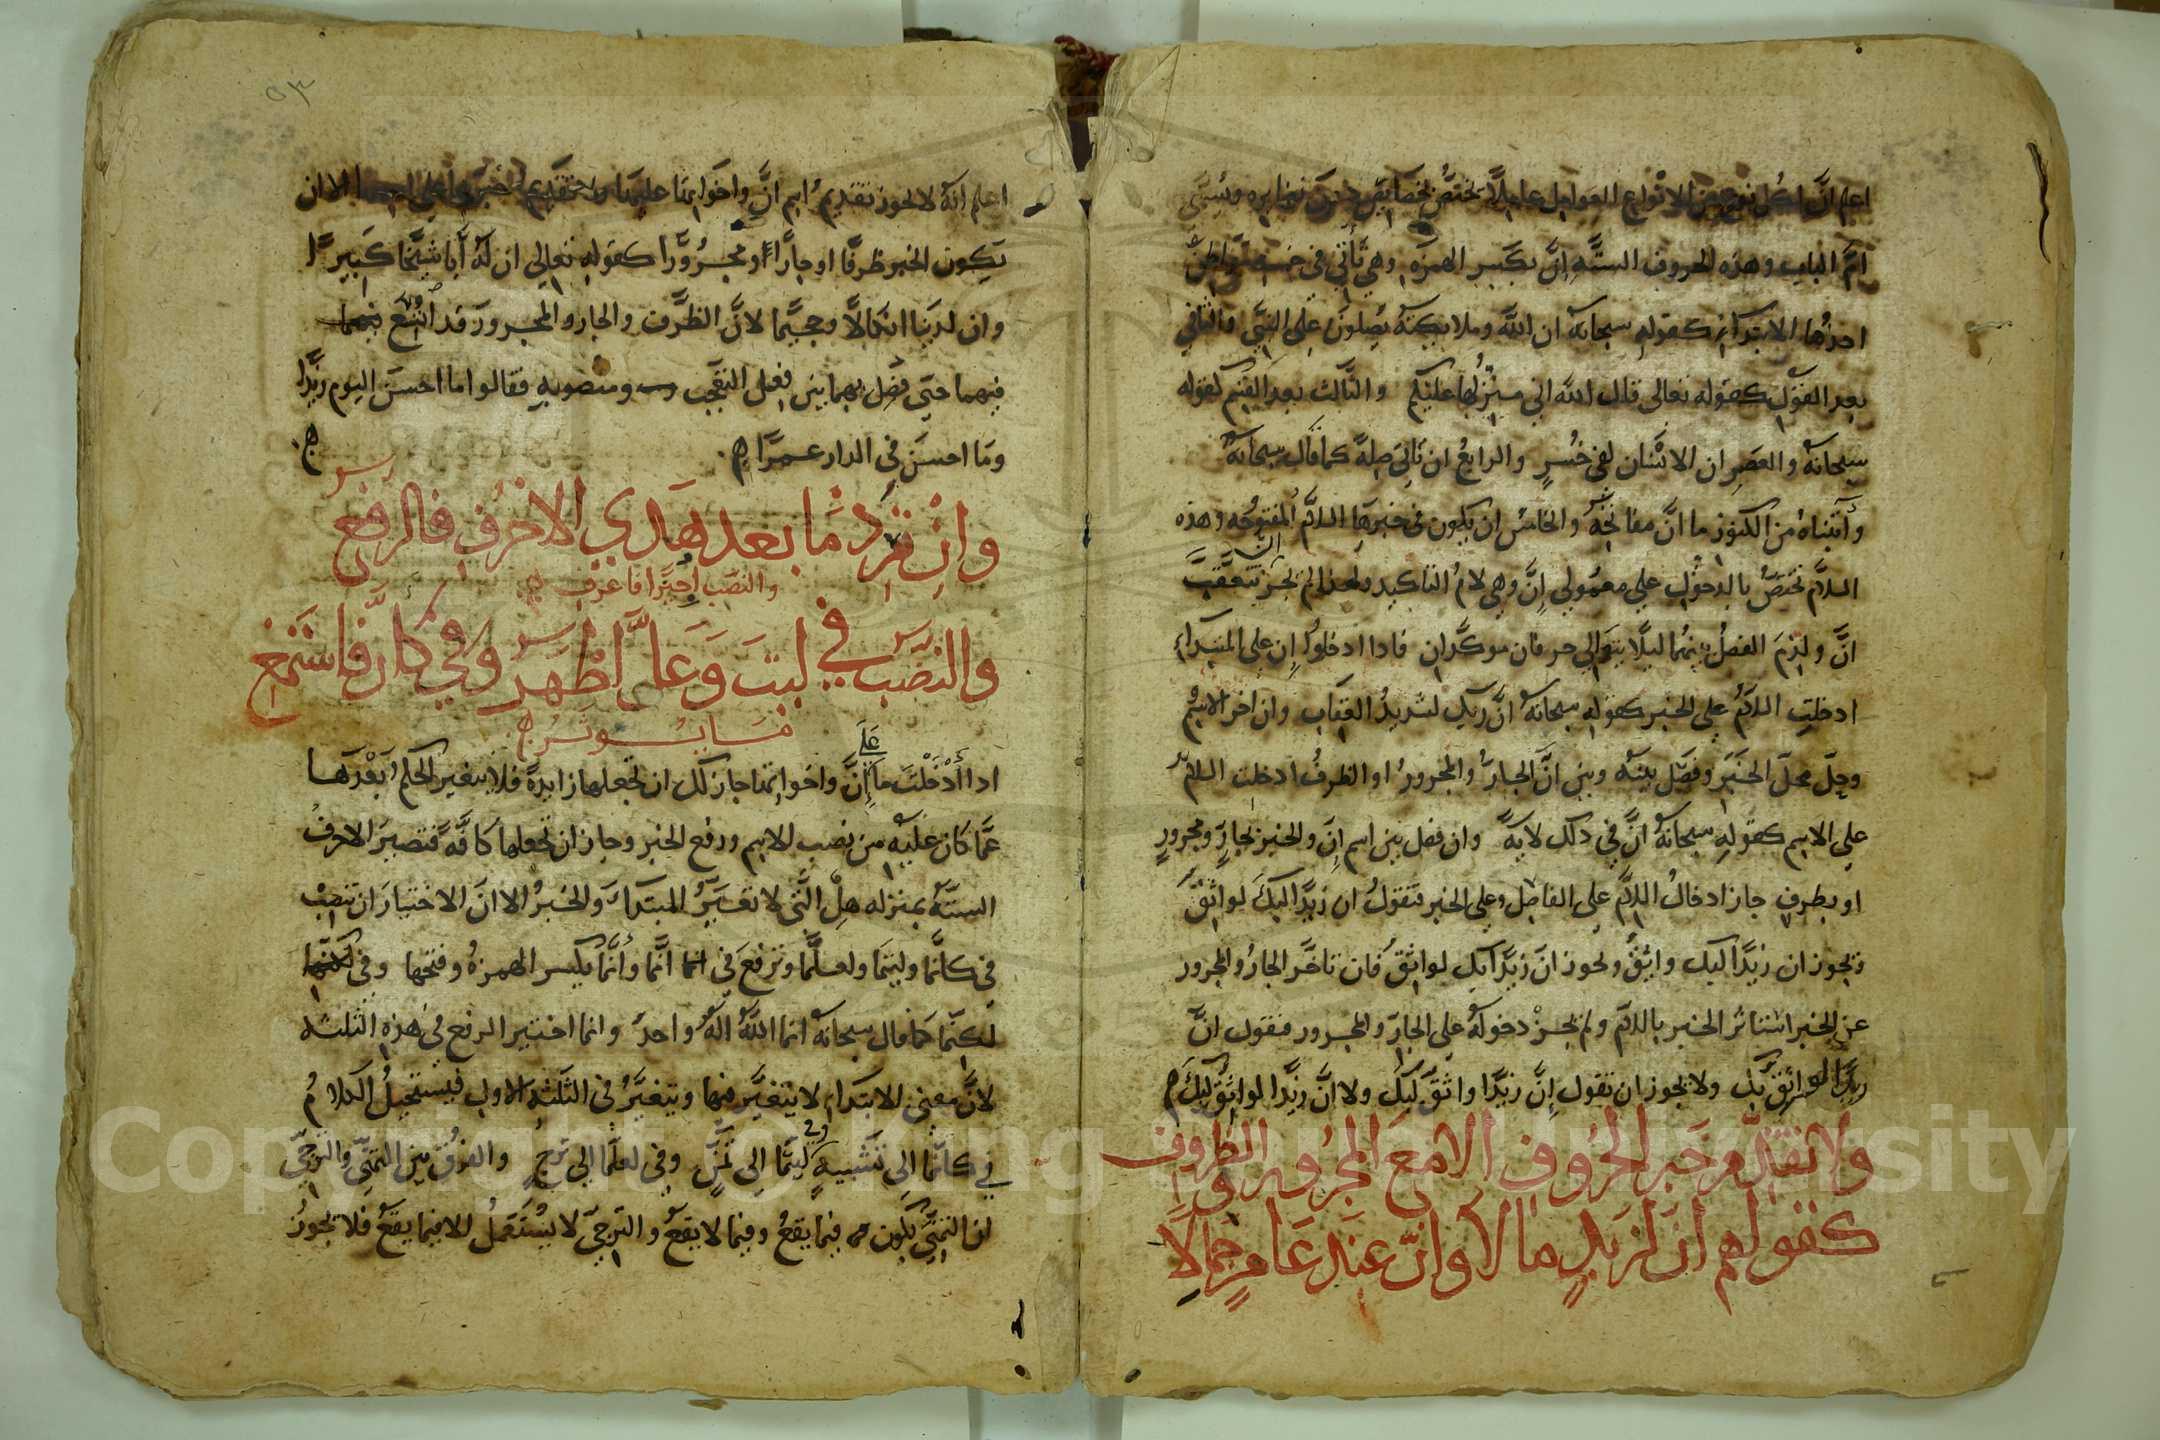 اعلم انَّ لكل نوع من الانواع العوامل عاملاً يختصُّ بخصايص دون نظايره ويُسمَّى
امَّ الباب وهذه الحروف الستَّه اِنَّ بكسر الهمزه وهي تأتي في خمسة مواطن
احدُها الابتداء كقوله سبحانه ان اللَّه وملايكتهُ يُصلونَ على النبيِّ والثاني
بعد القوْل كقوله تعالى قال الله اني منزّلُها عليكم والثَّالث بعد القسَم كقوله
سبحانه والعصرِ ان الانسَان لفي خُسرٍ والرابعُ ان تاتيَ صلةً كما قال سبحانهُ
وآتيناهُ من الكنوز ما انَّ مفاتحَهُ والخامسُ ان يكون في خبرها اللامُ المفتوحه وهذه
اللاَّم تختصُّ بالدخُول على معمُولي اِنَّ وهي لامُ التاكيد ولهذا لم يجز ان تتعقَّبَ
انَّ ولزمَ الفصلُ بينهُما ليلَّا يتوالى حرفان موكَّدان فاذا ادخلوا اِن على المبتداء
ادخلتِ اللامُ على الخبر كقوله سبحانهُ انَّ ربك لشديدُ العقَاب وان اخر الاسْم
وحلَّ محلَ الخبَر وفصَل بينه وبين انَّ الجارُّ والمجرورُ او الظرفُ ادخلت اللامُ
على الاسم كقوله سبحانهُ انَّ في ذلك لايةً وان فصل بين اسم اِنَ والخبر بجارٍّ ومجرورٍ
او بظرفٍ جاز ادخالُ اللامَّ على الفاصل وعلى الخبر فتقولُ ان زيدًا اليكَ لواثقٌ
ويجوز ان زيدًا لبك واثقٌ ولجوز انَ زيدًا بك لواثقٌ فان تاخَّر الجارُ والمجرور
عن الخبر استاثر الخبر باللامّ ولم يجزْ دخولهُ على الجارّ والمجرور فتقول انَّ
زيدًا لواثق بك ولا يجوز ان تقول اِنَّ زيدًا واثقٌ لبكَ ولا انَّ زيدًا لواثقٌ لبكَ
ولا تقدِّم خبر الحُروفِ الا مع المجرُور والظروفِ
كقولهم انَّ لزيدٍ مالا وانَّ عندَ عَامرٍ جمالا
٥٣
اعلم انهُ لا يجوز تقديمُ اسم انَّ واخواتها عليها ولا تقديم خبرها على اسمها الا ان
يكون الخبر ظرفًا او جارًّا ومجرُورًا كقوله تعالى ان لهُ أبًا شيخًا كبيرًا
وان لدينا انكالاً وجحيمًا لانَّ الظرف والجار والمجرور قد اتُّسعَ
فيهما حتى فصل بهما بين فعل التعجب ومنصوبه فقالوا ما احسنَ اليوم زيدًا
ومَا احسنَ في الدار عمرًا
وان تُزد ما بعد هذي الاحرُفِ فالرفعُ
والنصَب اُجيزا فاعرفِ
والنصَب في ليتَ وَعلَّ اظهَر وفي كأنَّ فاستمع
مَا يُوثَرُ
اذا أدْخَلْتَ ما عَلى اِنَّ واخواتها جاز لك ان تجعلها زايدةً فلا يتغير الحكمُ بعْدَها
عمَّا كان عليْه من نصب الاسم ورفع الخبر وجاز ان تجعلها كافَّةً فتصيرَ الاحرفُ
الستَّهُ بمنزله هلْ الَّتى لا تغيِّرُ المبتدأ والخبرُ الا انَّ الاختيارَ ان تنصِبْ
في كانَّما وليتما ولعلَّما وترفعَ في انَّما وأنَّما بكسر الهمزهُ وفتحها وفى
لكنَّما كما قال سبحانهُ انما اللَّهُ الهٌ واحدٌ وانما اختير الرفع في هذهِ الثلثه
لانَّ معنى الابتداء لا يتغيَّر فيها ويتغيَّرُ في الثلثه الاولِ فيستحيلُ الكلامُ
في كانَّما الى تشبيهٍ وفي ليتمَا الى تمَنٍّ وفي لعلَّما الى ترجٍ والفرْق بين التمَنِّى والترَجيّ
ان التمنِّي يكون فيما يقعُ وفيما لا يقعُ والترجيّ لا يُستَعمَلُ الا فيما يقعُ فلا تجوزُ
Copyright © King Saud University